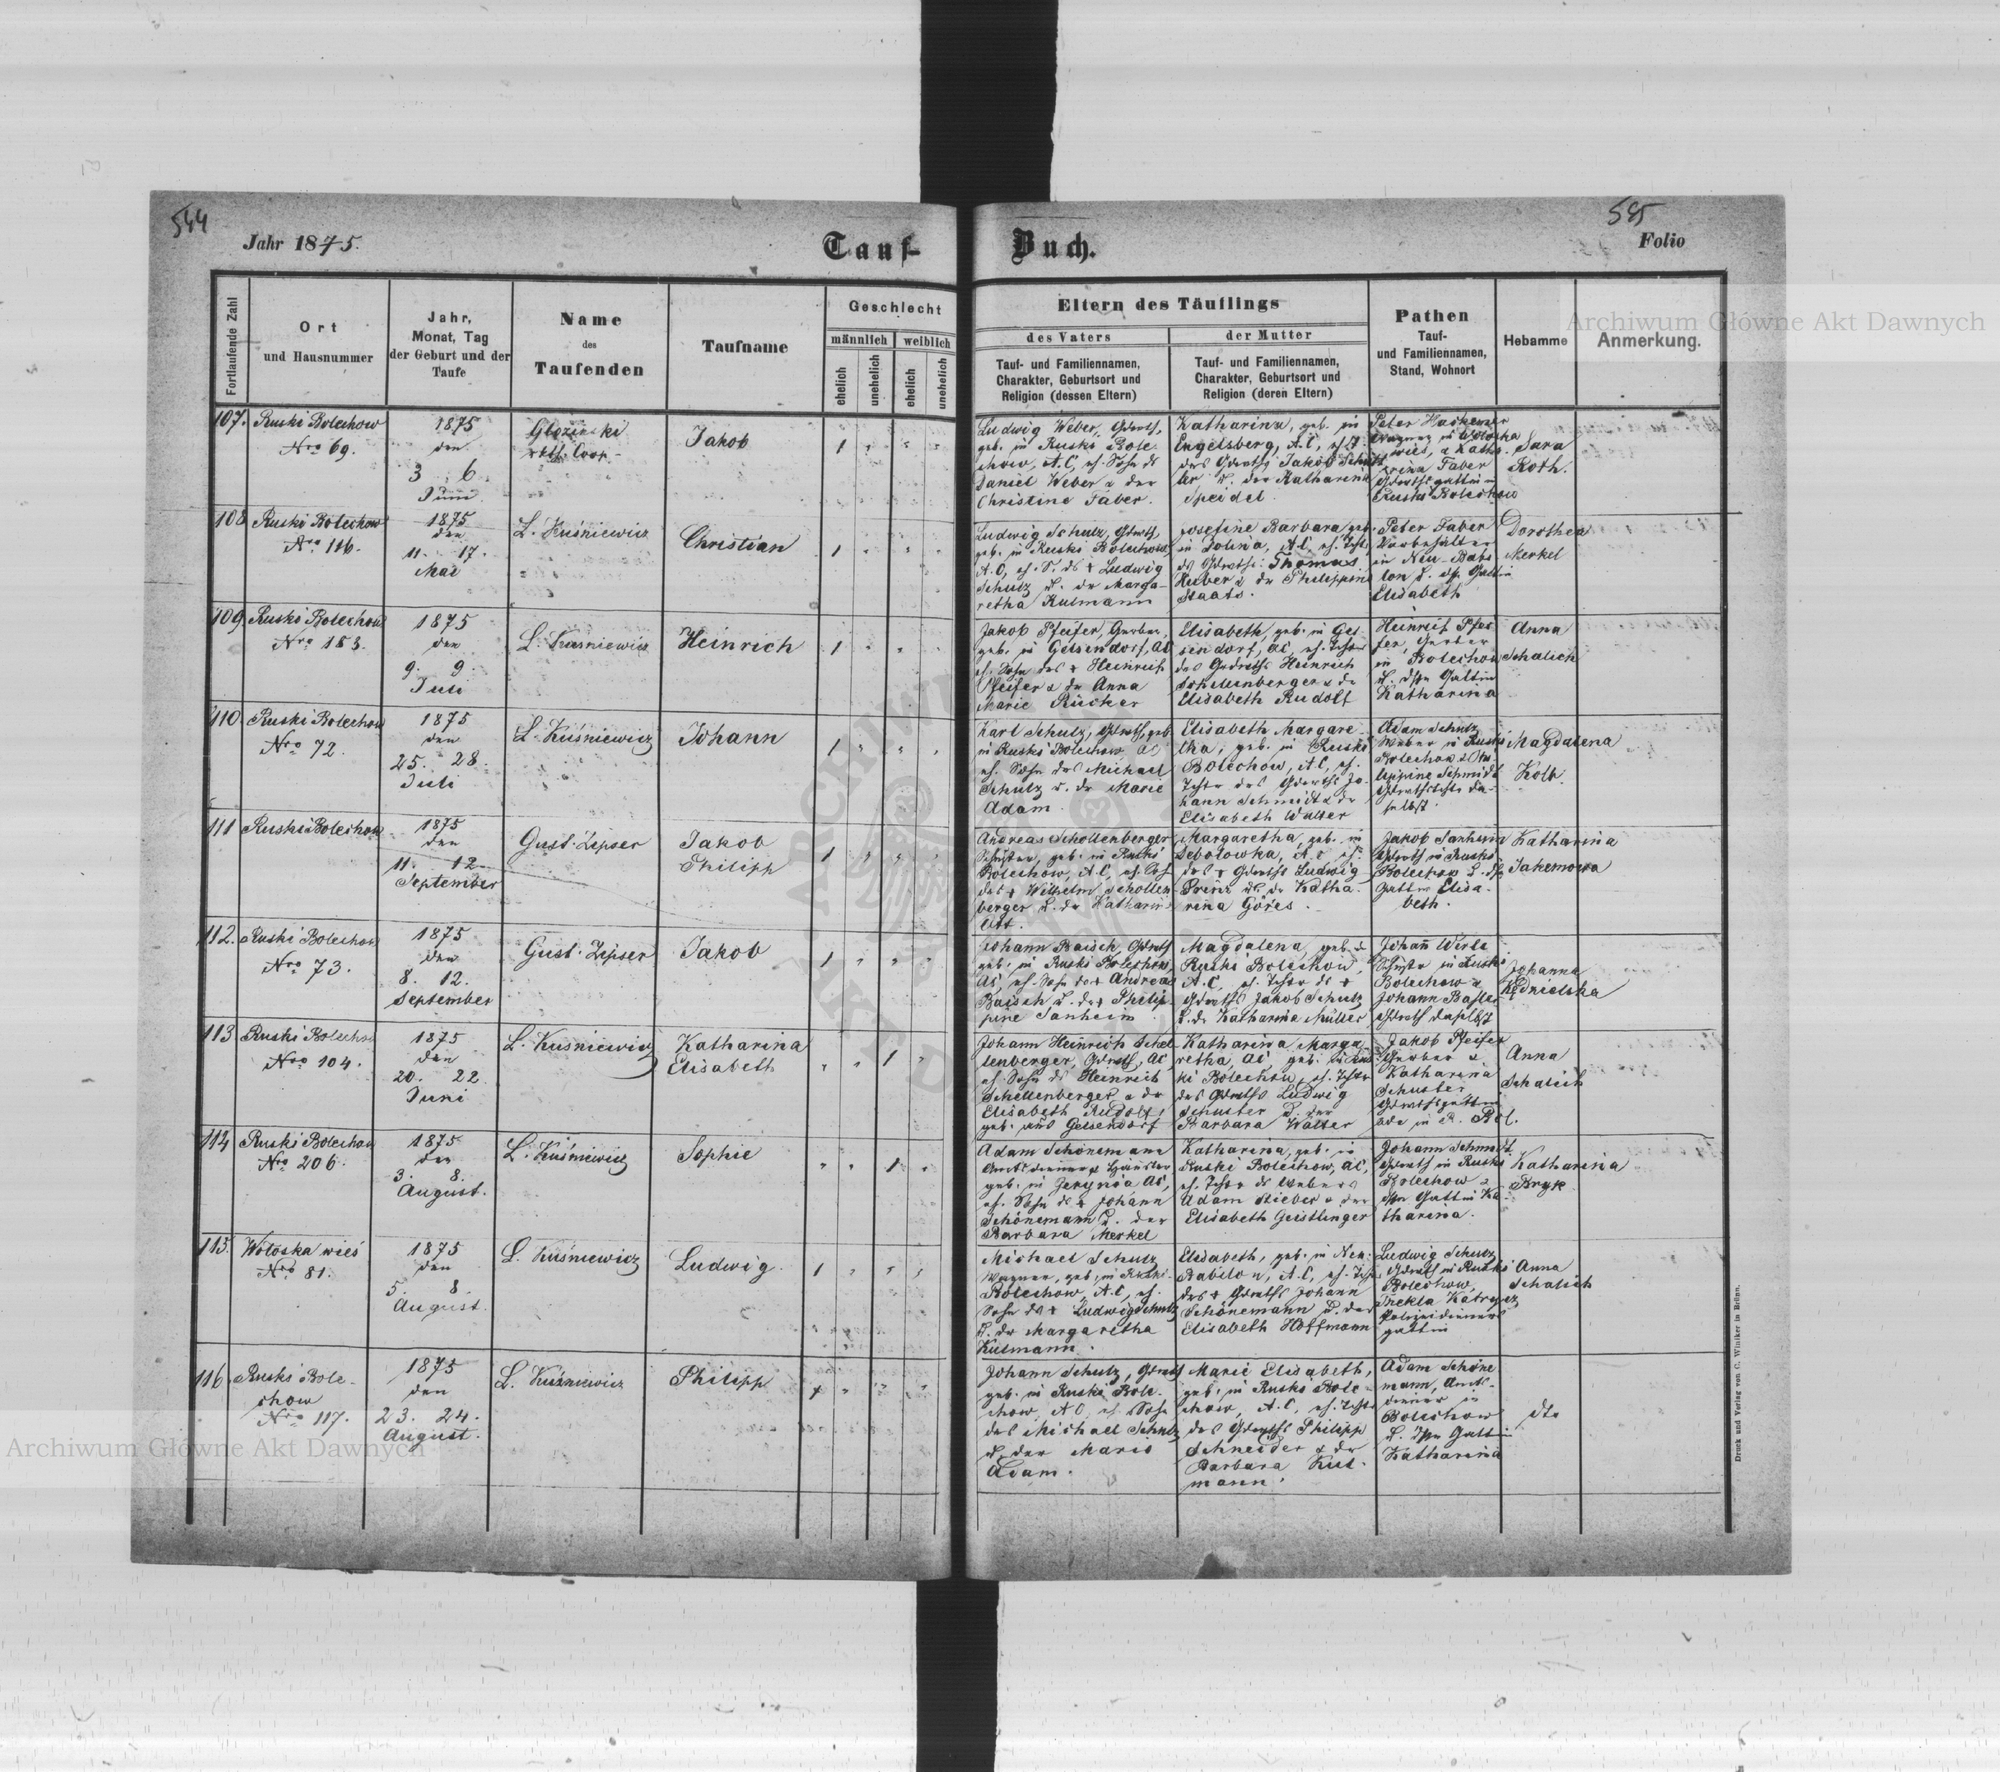 544
Jahr 1875.
Tauf-
Buch.
585
Folio
Fortlaufende Zahl
Ort
und Hausnummer
Jahr,
Monat, Tag
der Geburt und der
Taufe
Name
des
Taufenden
Taufname
Geschlecht
männlich
weiblich
ehelich
unehelich
ehelich
unehelich
Eltern des Täuflings
des Vaters
Tauf- und Familiennamen,
Charakter, Geburtsort und
Religion (dessen Eltern)
der Mutter
Tauf- und Familiennamen,
Charakter, Geburtsort und
Religion (deren Eltern)
Pathen
Tauf-
und Familiennamen,
Stand, Wohnort
Hebamme
Anmerkung.
107.
Ruski Bolechow
Nro 69.
1875
den
3. 6.
Juni
Jakob
1
Ludwig Weber,
geb. in Ruski Bole-
chow, A.C, eh. Sohn des
Daniel Weber u der
Christine Faber.
Katharina, geb. in
Engelsberg, A.C, eh. T.
des Jakob
der Katharina
Speidel
Peter
Wagner in Woloska
wies, u Katha-
rina Faber
Ruski Bolechow
Sara
Roth.
108
Ruski Bolechow
Nro 116.
1875
den
11. 17.
Mai
L. Kuśniewicz
Christian
1
Ludwig Schutz,
geb. in Ruski Bolechow,
A.C, eh. S. des + Ludwig
Schutz u. der Marga-
retha Kulmann
Josefine Barbara geb.
in Dolina, A.C, eh. Tcht.
des Thomas
Huber u der Philippine
Staats.
Peter Faber
in Neu-Babi-
lon u. dssn Gattin
Elisabeth
Dorothea
Merkel
109
Ruski Bolechow
Nro 153.
1875
den
9. 9.
Juli
L. Kuśniewicz
Heinrich
1
Jakob Pfeifer, Gerber,
geb. in Gelsendorf, AC
eh. Sohn des + Heinrich
Pfeifer u der Anna
Marie Rücker
Elisabeth, geb. in Gel-
sendorf, AC, eh. Tochter
des Heinrich
Schellenberger u der
Elisabeth Rudolf
Heinrich Pfei-
fer, Gerber
in Bolechow
u. dssn Gattin
Katharina
Anna
Schalich
110.
Ruski Bolechow
Nro 72.
1875
den
25. 28.
Juli
L. Kuśniewicz
Johann
1
Karl Schutz, geb
in Ruski Bolechow, AC
eh. Sohn des Michael
Schutz u. der Marie
Adam.
Elisabeth Margare-
tha, geb. in Ruski
Bolechow, A.C, eh.
Tchtr des Jo-
hann Schmidt u der
Elisabeth Walter
Adam Schutz
Weber in Ruski
Bolechow u Phi-
lippine Schmidt
da-
selbst.
Magdalena
Kolb.
111
Ruski Bolechow
1875
den
11. 12.
September
Gust. Zipser
Jakob
Philipp
1
Andreas Schollenberger
Schuster, geb. in Ruski
Bolechow, A.C, eh. Sohn
des + Wilhelm Schollen-
berger u. der Katharina
Ott.
Margaretha, geb. in
Debolowka, A.C eh.
des + Ludwig
Prinz u. der Katha-
rina Göres.
Jakob Sanheim
in Ruski
Bolechow u. dssn
Gattin Elisa-
beth.
Katharina
Jakemowa
112.
Ruski Bolechow
Nro 73.
1875
den
8. 12.
September
Gust. Zipser
Jakob
1
Johann Baisch,
geb. in Ruski Bolechow,
AC, eh. Sohn des + Andreas
Baisch u. der + Philip-
pine Sanheim
Magdalena, geb. in
Ruski Bolechow,
A.C, eh. Tchtr des +
Jakob Schutz
u. der Katharina Müller
Johann
Schuster in Ruski
Bolechow u
Johann
daselbst
Johanna
113
Ruski Bolechow
Nro 104.
1875
den
20. 22.
Juni
L. Kuśniewicz
Katharina
Elisabeth
1
Johann Heinrich Schel-
lenberger, AC
eh. Sohn des Heinrich
Schellenberger u der
Elisabeth Rudolf,
geb. aus Gelsendorf
Katharina Marga-
retha, AC geb. in Rus-
ki Bolechow, eh. Tchtr
des Ludwig
Schuster u. der
Barbara Walter
Jakob Pfeifer
Gerber u
Katharina
Schuster
in R. Bol.
Anna
Schalich
114
Ruski Bolechow
Nro 206.
1875
den
3. 8.
August.
L. Kuśniewicz
Sophie
1
Adam Schönemann
Amtsdiener
geb. in
eh. Sohn des + Johann
Schönemann u. der
Barbara Merkel
Katharina, geb. in
Ruski Bolechow, AC,
eh. Tchtr des Webers
Adam Stieber u der
Elisabeth Geistlinger
Johann Schmidt
in Ruski
Bolechow u
dssn Gattin Ka-
tharina.
Katharina
Bryk
115.
Woloska wieś
Nro 81.
1875
den
5. 8.
August.
L. Kuśniewicz
Ludwig.
1
Michael Schutz
Wagner, geb. in Ruski
Bolechow, A.C, eh.
Sohn des + Ludwig Schutz
u. der Margaretha
Kulmann.
Elisabeth, geb. in Neu-
Babilon, A.C, eh. Tchtr
des + Johann
Schönemann u. der
Elisabeth Hoffmann
Ludwig Schutz
in Ruski
Bolechow,
Thekla
Polizeidieners
gattin
Anna
Schalich
116.
Ruski Bole-
chow
Nro 117.
1875
den
23. 24.
August.
L. Kuśniewicz
Philipp
1
Johann Schutz,
geb. in Ruski Bole-
chow, A.C, eh. Sohn
des Michael Schutz
u. der Marie
Adam.
Marie Elisabeth,
geb. in Ruski Bole-
chow, A.C, eh. Tchtr
des Philipp
Schneider u der
Barbara Kul-
mann.
Adam Schöne-
mann, Amts-
diener in
Bolechow
u. dssn Gattin
Katharina
dto
Druck und Verlag von C. Winiker in Brünn.
Archiwum Główne Akt Dawnych
Archiwum Główne Akt Dawnych